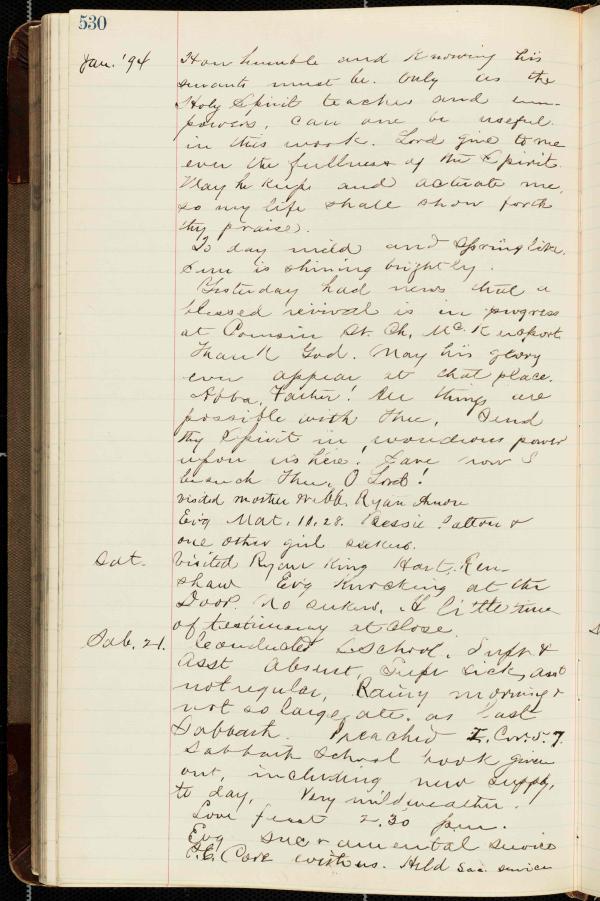 530
Jan. '94 How humble and knowing his
servants must be. Only as the
Holy Spirit teaches and em-
powers, can one be useful
in this work. Lord give to me
ever the fullness of the Spirit.
May he keep and actuate me,
so my life shall show forth
thy praise.
To day mild and Spring like.
Sun is shining brightly.
Yesterday had news that a
blessed revival is in progress
at Cousin St. Ch. McKeesport.
Thank God. May his glory
ever appear at that place.
Abba, Father! All things are
possible with Thee. Send
thy Spirit in wondrous power
upon us here. Save now I
beseech Thee, O Lord!
Visited mother Webb, Ryan
Evg Mat. 11.28. Bessie Patton &
one other girl seekers.
Sat. Visited Ryan King Hart. Ren-
shaw Evg Knocking at the
Door. No seekers. A little time
of testimony at close.
Sab. 21. Conducted S School. Supt &
Asst absent, Supt sick, asst
not regular, Rainy morning &
not so large att. as last
Sabbath. Preached I. Cor. 5.7.
Sabbath School book given
out, including new supply,
to day. Very mild weather.
Love feast 2.30 p.m.
Evg sacramental service
P.E. Core with us. Held Sac. service